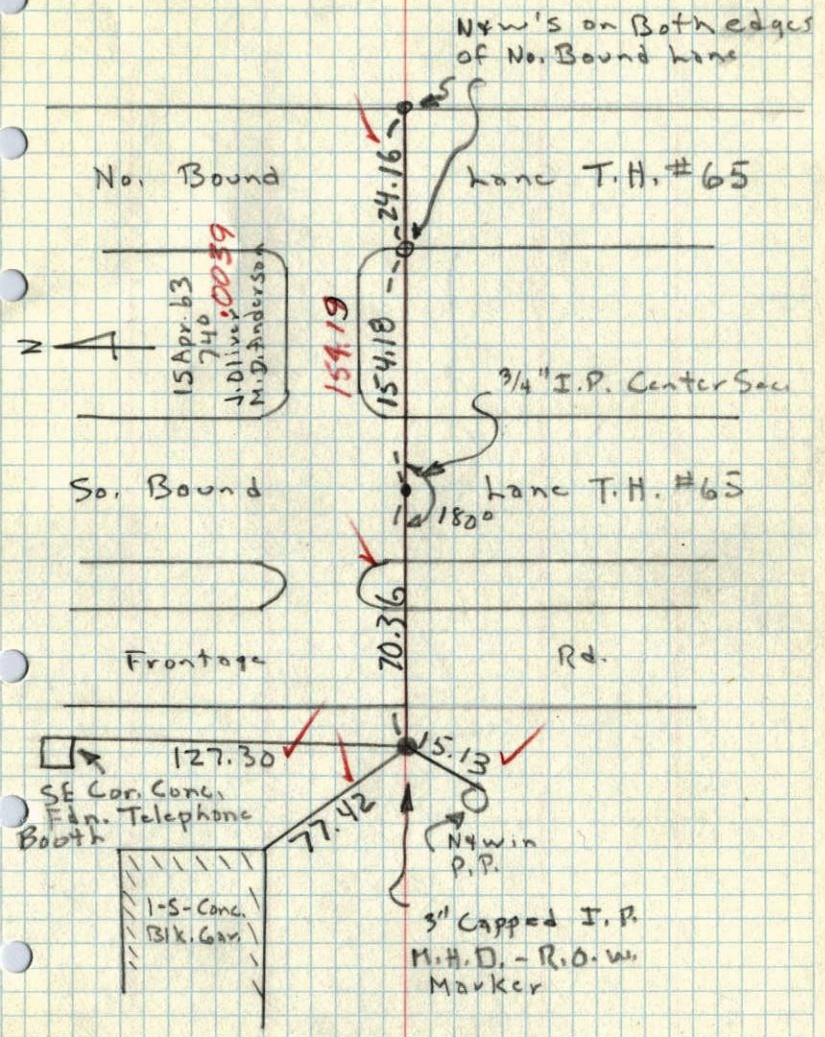 N&W's on Both edges
of No. Bound Lane
24.16
No. Bound Lane T.H. #65
15 Apr. 63
740
.0039
J. Oliver
M.D. Anderson
N
154.19
154.18
3/4" I.P. Center Sec.
So. Bound Lane T.H. #65
180°
70.36
Frontage Rd.
127.30
15.13
SE Cor. Conc.
Fdn. Telephone
Booth
77.42
N&W in
P.P.
1-S-Conc.
Blk. Gar.
3" Capped I.P.
M.H.D. - R.O.W.
Marker